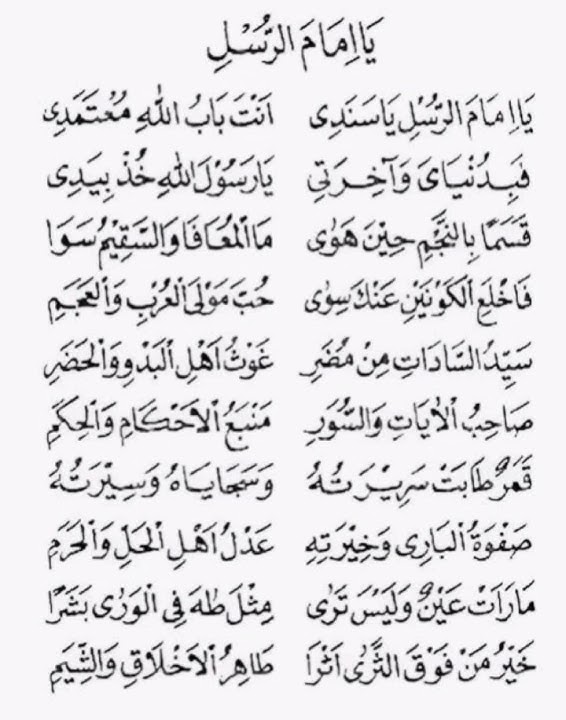 يَااِمَامَ الرُّسْلِ
يَااِمَامَ الرُّسْلِ يَاسَنَدِى اَنْتَ بَابُ اللهِ مُعْتَمَدِى
فَبِدُنْيَاىَ وَآخِرَتِي يَارَسُوْلَ اللهِ خُذْ بِيَدِى
قَسَمًا بِالنَّجْمِ حِيْنَ هَوٰى مَاالْمُعَافَا وَالسَّقِيْمُ سَوَا
فَاخْلَعِ الْكَوْنَيْنِ عَنْكَ سِوٰى حُبَّ مَوْلَى الْعُرْبِ وَالْعَجَمِ
سَيِّدُ السَّادَاتِ مِنْ مُضَرِ غَوْثُ اَهْلِ الْبَدْوِ وَالْحَضَرِ
صَاحِبُ الْاٰيَاتِ وَالسُّوَرِ مَنْبَعُ الْاَحْكَامِ وَالْحِكَمِ
قَمَرٌ طَابَتْ سَرِيْرَتُهُ وَسَجَايَاهُ وَسِيْرَتُهُ
صَفْوَةُ الْبَارِى وَخِيْرَتِهِ عَدْلُ اَهْلِ الْحِلِّ وَالْحَرَمِ
مَارَاَتْ عَيْنٌ وَلَيْسَ تَرٰى مِثْلَ طٰهَ فِى الْوَرٰى بَشَرًا
خَيْرُ مَنْ فَوْقَ الثَّرٰى اَثَرَا طَاهِرُ الْاَخْلَاقِ وَالشِّيَمِ